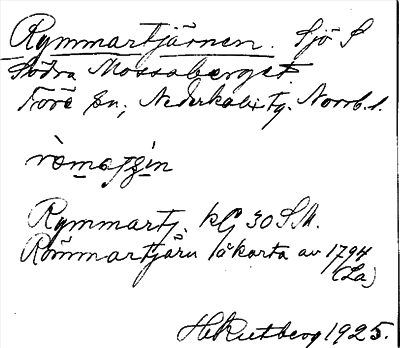 Rymmartjärnen. Sjö S
Södra Mossaberget.
Töre sn, Nederkalix tg. Norrb. l.
Rymmartj. kG 30 S.M.
Römmartjärn å karta av 1794
(La)
H. Rutberg 1925.